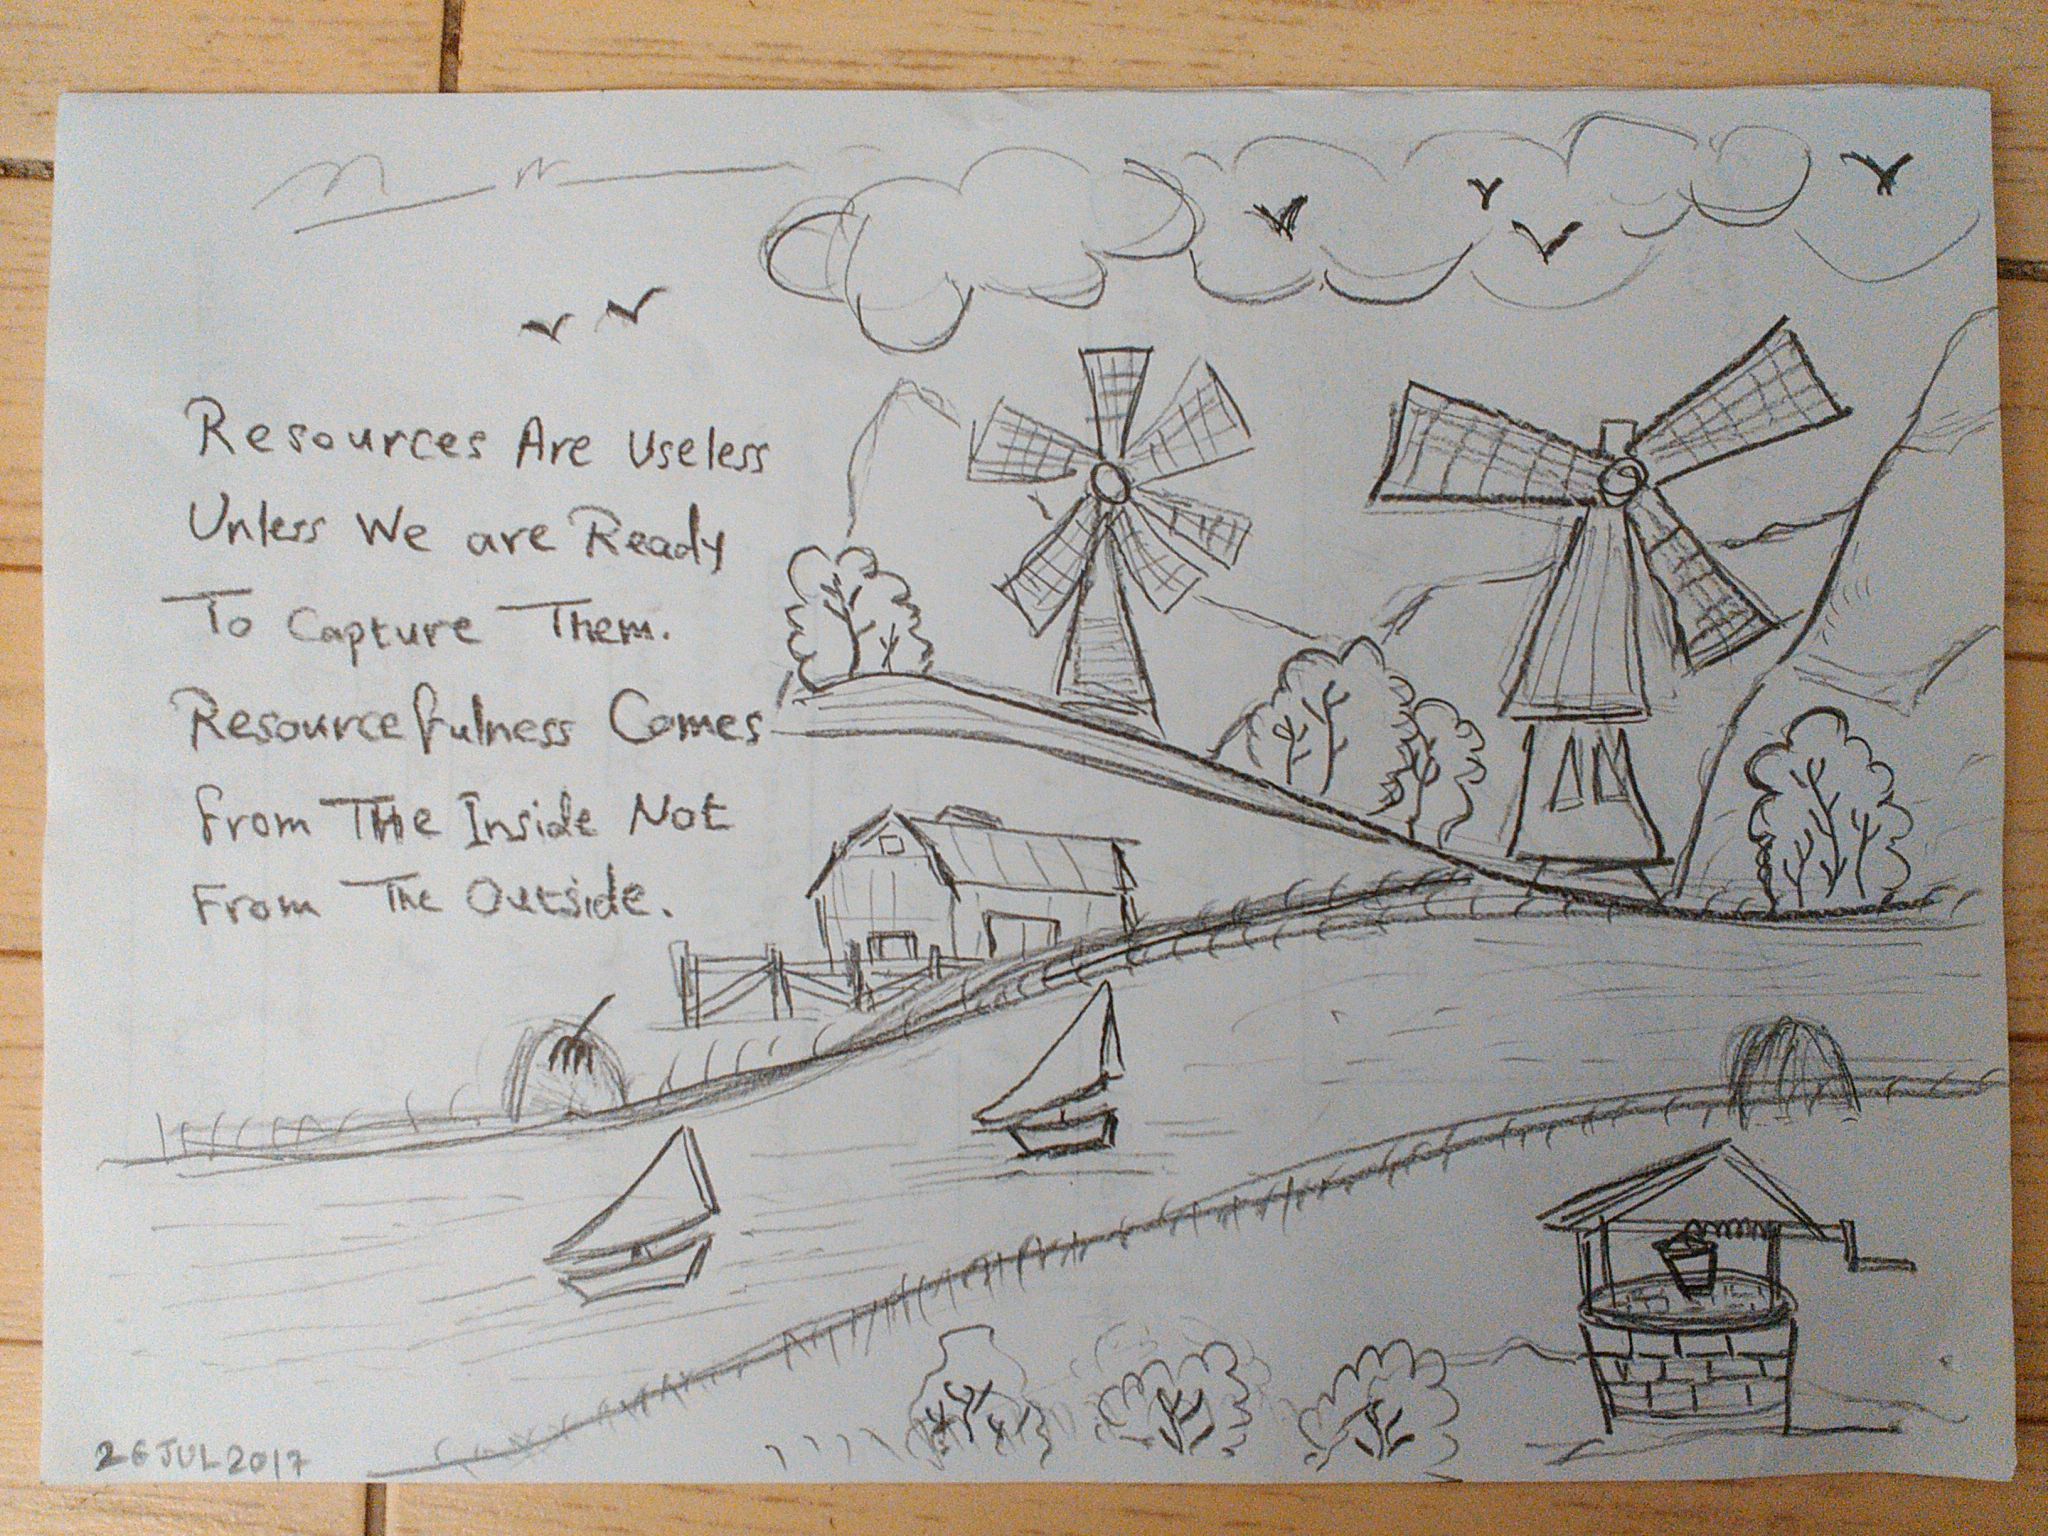 Resources Are Useless
Unless We are Ready
To Capture Them.
Resourcefulness Comes
From The Inside Not
From The Outside.
26 JUL 2017